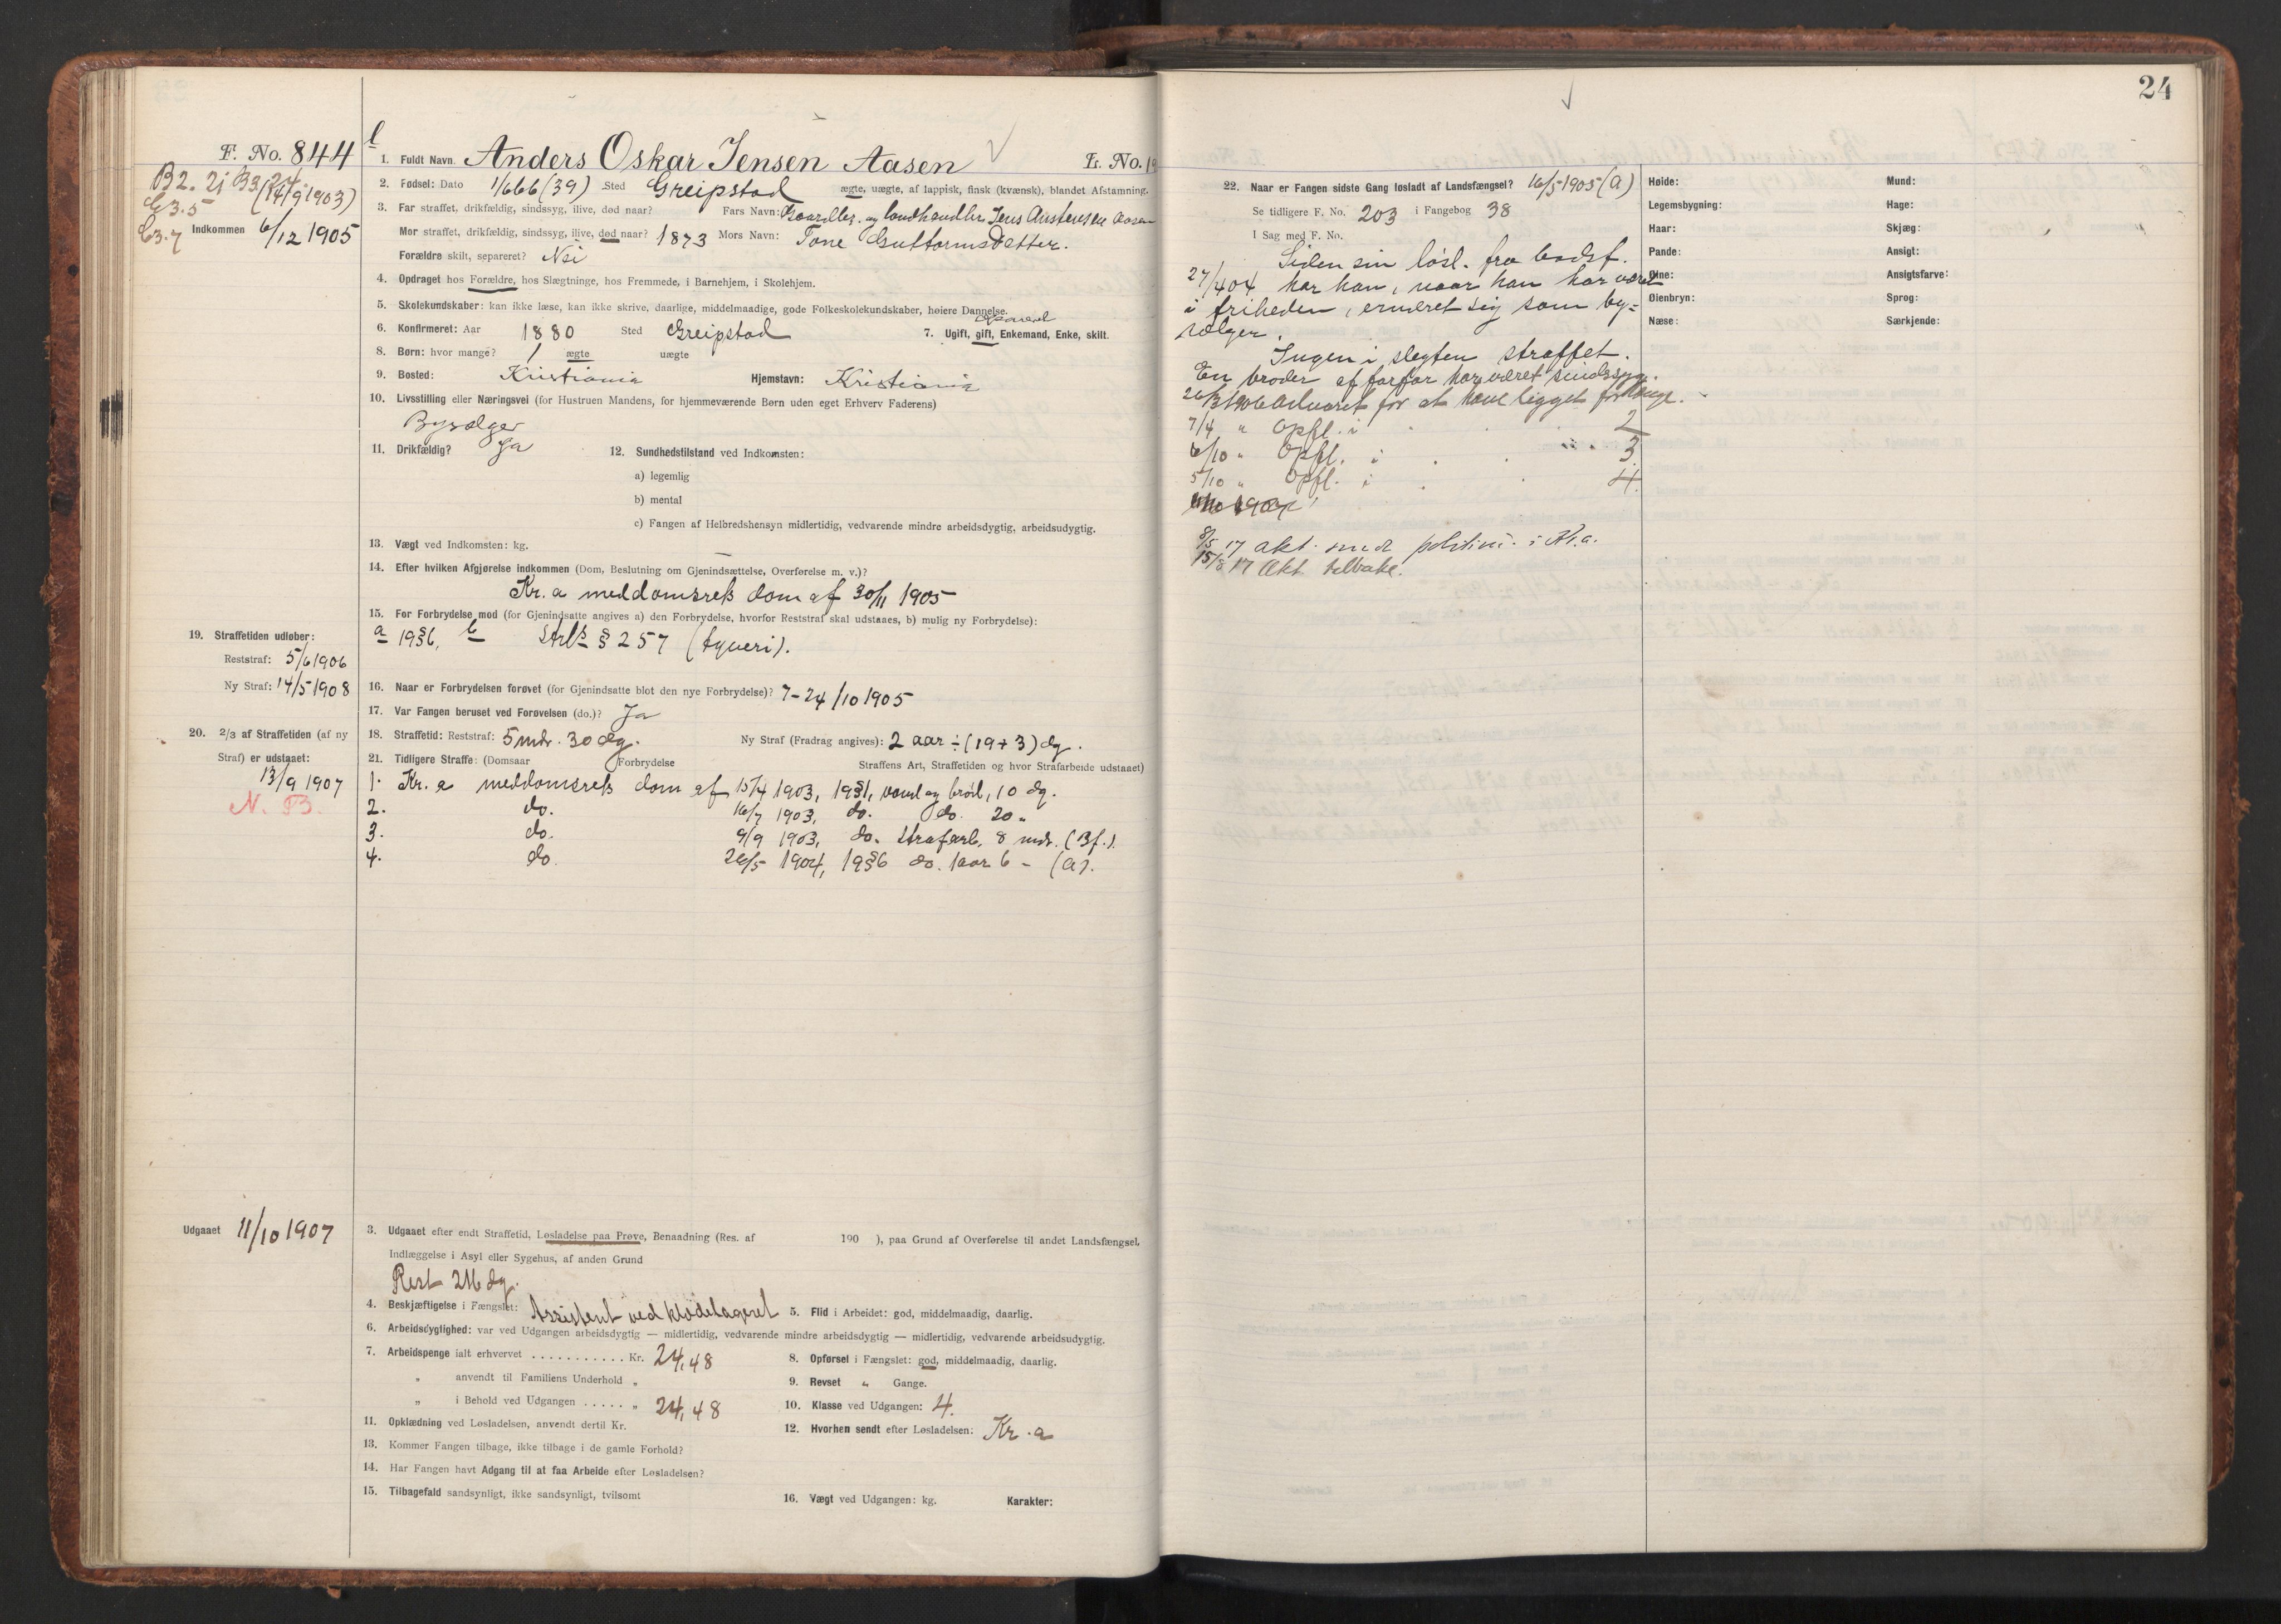 24
F. No. 844
1. Fuldt Navn. Anders Oskar Jensen Aasen L. No.
B2. 21 B3. 24
(14/9 1903)
C3.5
C3.7
Indkommen 6/12 1905
2. Fødsel: Dato 1/6 66 (39) Sted Greipstad ægte, uægte, af lappisk, finsk (kvænsk), blandet Afstamning.
3. Far straffet, drikfældig, sindssyg, ilive, død naar? Fars Navn: Gaardbr. og landhandler Jens Austensen Aasen
Mor straffet, drikfældig, sindssyg, ilive, død naar? 1873 Mors Navn: Tone Guttormsdatter.
Forældre skilt, separeret? Nei
4. Opdraget hos Forældre, hos Slægtninge, hos Fremmede, i Barnehjem, i Skolehjem.
5. Skolekundskaber: kan ikke læse, kan ikke skrive, daarlige, middelmaadige, gode Folkeskolekundskaber, høiere Dannelse.
6. Konfirmeret: Aar 1880 Sted Greipstad 7. Ugift, gift, Enkemand, Enke, skilt.
8. Børn: hvor mange? 1 ægte uægte
9. Bosted: Kristiania Hjemstavn: Kristiania
10. Livsstilling eller Næringsvei (for Hustruen Mandens, for hjemmeværende Børn uden eget Erhverv Faderens)
Bysælger
11. Drikfældig? Ja 12. Sundhedstilstand ved Indkomsten:
a) legemlig
b) mental
c) Fangen af Helbredshensyn midlertidig, vedvarende mindre arbeidsdygtig, arbeidsudygtig.
13. Vægt ved Indkomsten: kg.
14. Efter hvilken Afgjørelse indkommen (Dom, Beslutning om Gjenindsættelse, Overførelse m. v.)?
Kr.a meddomsrets dom af 30/11 1905
15. For Forbrydelse mod (for Gjenindsatte angives a) den Forbrydelse, hvorfor Reststraf skal udstaaes, b) mulig ny Forbrydelse):
a 19§6, b Strl's § 257 (tyveri).
19. Straffetiden udløber:
Reststraf: 5/6 1906
Ny Straf: 14/5 1908
16. Naar er Forbrydelsen forøvet (for Gjenindsatte blot den nye Forbrydelse)? 7-24/10 1905
17. Var Fangen beruset ved Forøvelsen (do.)? Ja
20. 2/3 af Straffetiden (af ny
Straf) er udstaaet:
13/9 1907
N. B.
18. Straffetid: Reststraf: 5 mdr. 30 dg. Ny Straf (Fradrag angives): 2 aar ÷ (19+3) dg.
21. Tidligere Straffe: (Domsaar Forbrydelse Straffens Art, Straffetiden og hvor Strafarbeide udstaaet)
1. Kr.a meddomsrets dom af 15/4 1903, 19§1, vand og brød, 10 dg.
2. do. 16/7 1903, do. do. 20 "
3. do. 9/9 1903, do. Strafarb. 8 mdr. (Bf.).
4. do. 26/5 1904, 19§6 do. 1 aar 6 - (A).
Udgaaet 11/10 1907
3. Udgaaet efter endt Straffetid, Løsladelse paa Prøve, Benaadning (Res. af 190 ), paa Grund af Overførelse til andet Landsfængsel,
Indlæggelse i Asyl eller Sygehus, af anden Grund
Rest 216 dg.
4. Beskjæftigelse i Fængslet: Assistent ved klædelageret 5. Flid i Arbeidet: god, middelmaadig, daarlig.
6. Arbeidsdygtighed: var ved Udgangen arbeidsdygtig — midlertidig, vedvarende mindre arbeidsdygtig — midlertidig, vedvarende arbeidsudygtig.
7. Arbeidspenge ialt erhvervet . . . . . . . . . . . Kr. 24,48 8. Opførsel i Fængslet: god, middelmaadig, daarlig.
" anvendt til Familiens Underhold " 9. Revset " Gange.
" i Behold ved Udgangen . . . . . " 24,48 10. Klasse ved Udgangen: 4.
11. Opklædning ved Løsladelsen, anvendt dertil Kr. 12. Hvorhen sendt efter Løsladelsen: Kr.a
13. Kommer Fangen tilbage, ikke tilbage i de gamle Forhold?
14. Har Fangen havt Adgang til at faa Arbeide efter Løsladelsen?
15. Tilbagefald sandsynligt, ikke sandsynligt, tvilsomt 16. Vægt ved Udgangen: kg. Karakter:
22. Naar er Fangen sidste Gang løsladt af Landsfængsel? 16/5 1905 (A)
Se tidligere F. No. 203 i Fangebog 38
I Sag med F. No.
Siden sin løsl. fra bodsf.
27/4 04 har han, naar han har været
i friheden, ernæret sig som by-
sælger.
Ingen i slegten straffet.
En broder af farfar har været sindssyg.
26/3 1906 Advaret for at have ligget for længe.
7/4 " Opfl. i 2
6/10 " Opfl. i 3
5/10 " Opfl. i 4.
8/5 17 akt. sendt politim. i Kr.a.
15/8 17 Akt. tilbake.
Høide: Mund:
Legemsbygning: Hage:
Haar: Skjæg:
Pande: Ansigt:
Øine: Ansigtsfarve:
Øienbryn: Sprog:
Næse: Særkjende: